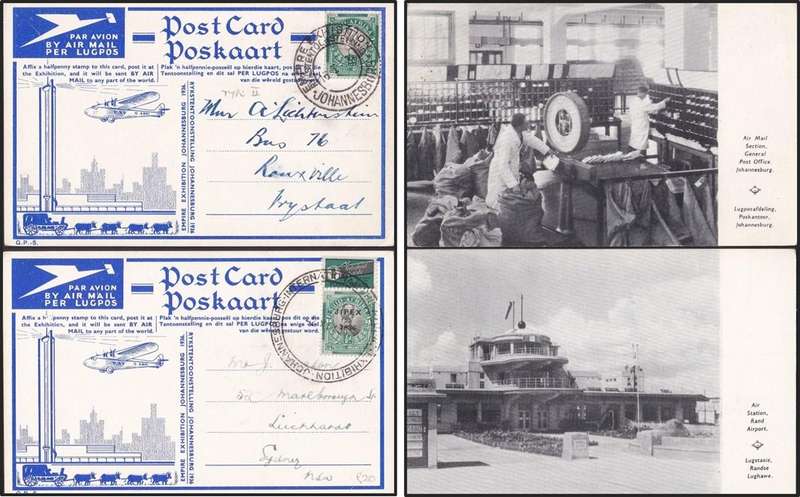 PAR AVION
BY AIR MAIL
PER LUGPOS
Post Card
Poskaart
Affix a halfpenny stamp to this card, post it at
the Exhibition, and it will be sent BY AIR
MAIL to any part of the world.
Plak 'n halfpennie-posseël op hierdie kaart, pos dit
Tentoonstelling en dit sal PER LUGPOS na
van die wêreld gestuur
JOHANNESBURG
RYKSTENTOONSTELLING JOHANNESBURG 1936
EMPIRE EXHIBITION JOHANNESBURG 1936
Mnr A. Lichtenstein
Bus 76
Rouxville
Vrystaat
G.P.-S.
Air Mail
Section,
General
Post Office,
Johannesburg.
Lugposafdeling,
Poskantoor,
Johannesburg.
PAR AVION
BY AIR MAIL
PER LUGPOS
Post Card
Poskaart
Affix a halfpenny stamp to this card, post it at
the Exhibition, and it will be sent BY AIR
MAIL to any part of the world.
Plak 'n halfpennie-posseël op hierdie kaart, pos
Tentoonstelling en dit sal PER LUGPOS na enige deel
van die wêreld gestuur word.
JIPEX
1936
EXHIBITION JOHANNESBURG INTERNAT
RYKSTENTOONSTELLING JOHANNESBURG 1936
EMPIRE EXHIBITION JOHANNESBURG 1936
Mr J.
Marlborough St
Leichhardt
Sydney
NSW
£20
Air
Station,
Rand
Airport.
Lugstasie,
Randse
Lughawe.